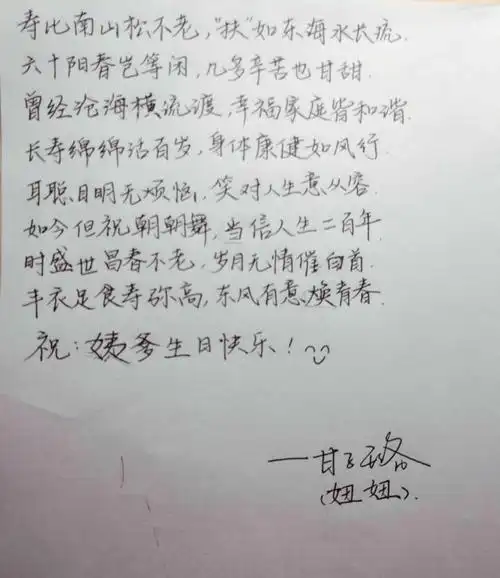 寿比南山松不老，“扶”如东海水长流.
六十阳春岂等闲，几多辛苦也甘甜.
曾经沧海横流渡，幸福家庭皆和谐.
长寿绵绵活百岁，身体康健如风行.
耳聪目明无烦恼，笑对人生意从容.
如今但祝朝朝舞，当信人生二百年.
时盛世昌春不老，岁月无情催白首.
丰衣足食寿弥高，东风有意焕青春.
祝：姨爹生日快乐！
—甘
（妞妞）.